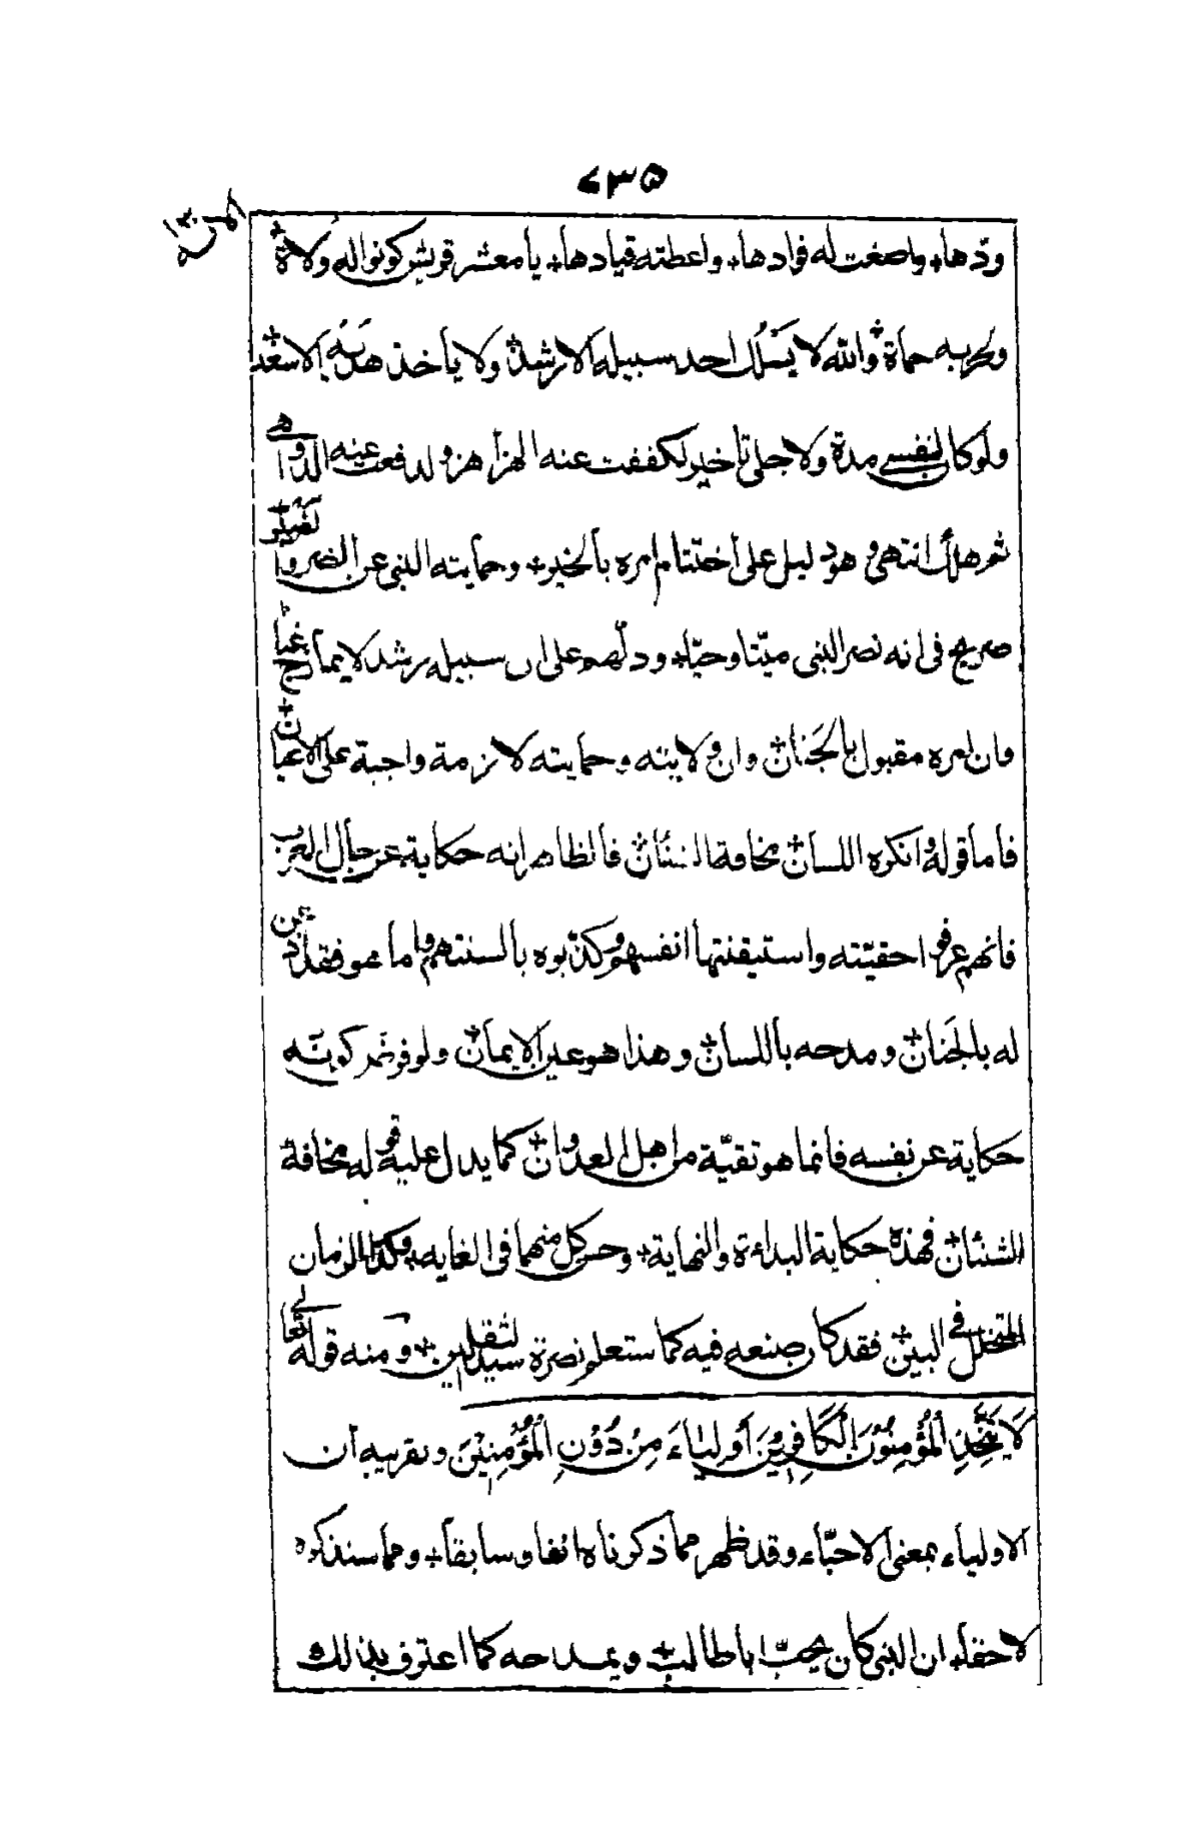 ٧٣٥
ودّها، واصغت له فوادها، واعطته قيادها، يا معشر قريش كونوا له ولاة
ولحزبه حماة والله لا يَسلُك احد سبيله الا رشد ولا ياخذ هديه الا سعد
ولو كان لنفسي مدة ولاجلي تاخير لكففت عنه الهزاهز ولدفعت عنه الدواهي
ثم هلك انتهى وهو دليل على اختتام امره بالخير، وحمايته النبي عن الضير و
صريح في انه نصر النبي ميّتا وحيّا، ودلّهم على ان سبيله رشد لا يمازج غيا
وان امره مقبول بالجَنان وان ولايته وحمايته لازمة واجبة على الاعيان
فاما قوله وانكره اللسان مخافة الشنئان فالظاهر انه حكاية عن حال العرب
فانهم عرفوا حقيّته واستيقنتها انفسهم وكذّبوه بالسنتهم واما هو فقد اذعن
له بالجَنان ومدحه باللسان وهذا هو عين الايمان ولو فرض كونه
حكاية عن نفسه فانما هو تقيّة من اهل العدوان كما يدل عليه قوله مخافة
الشنئان فهذه حكاية البداءة والنهاية، وحسن كل منهما في الغاية، وكذا الزمان
المتخلل في البين فقد كان صنعه فيه كما ستعلم نصرة سيد الثقلين، ومنه قوله تعالى
لَا يَتَّخِذِ الْمُؤْمِنُوْنَ الْكَافِرِيْنَ أَوْلِيَاءَ مِنْ دُوْنِ الْمُؤْمِنِيْنَ وتقريبه ان
الاولياء بمعنى الاحبّاء وقد ظهر مما ذكرناه انفا وسابقا، ومما سنذكره
لاحقا، ان النبي كان يحبّ اباطالب ويمدحه كما اعترف بذالك